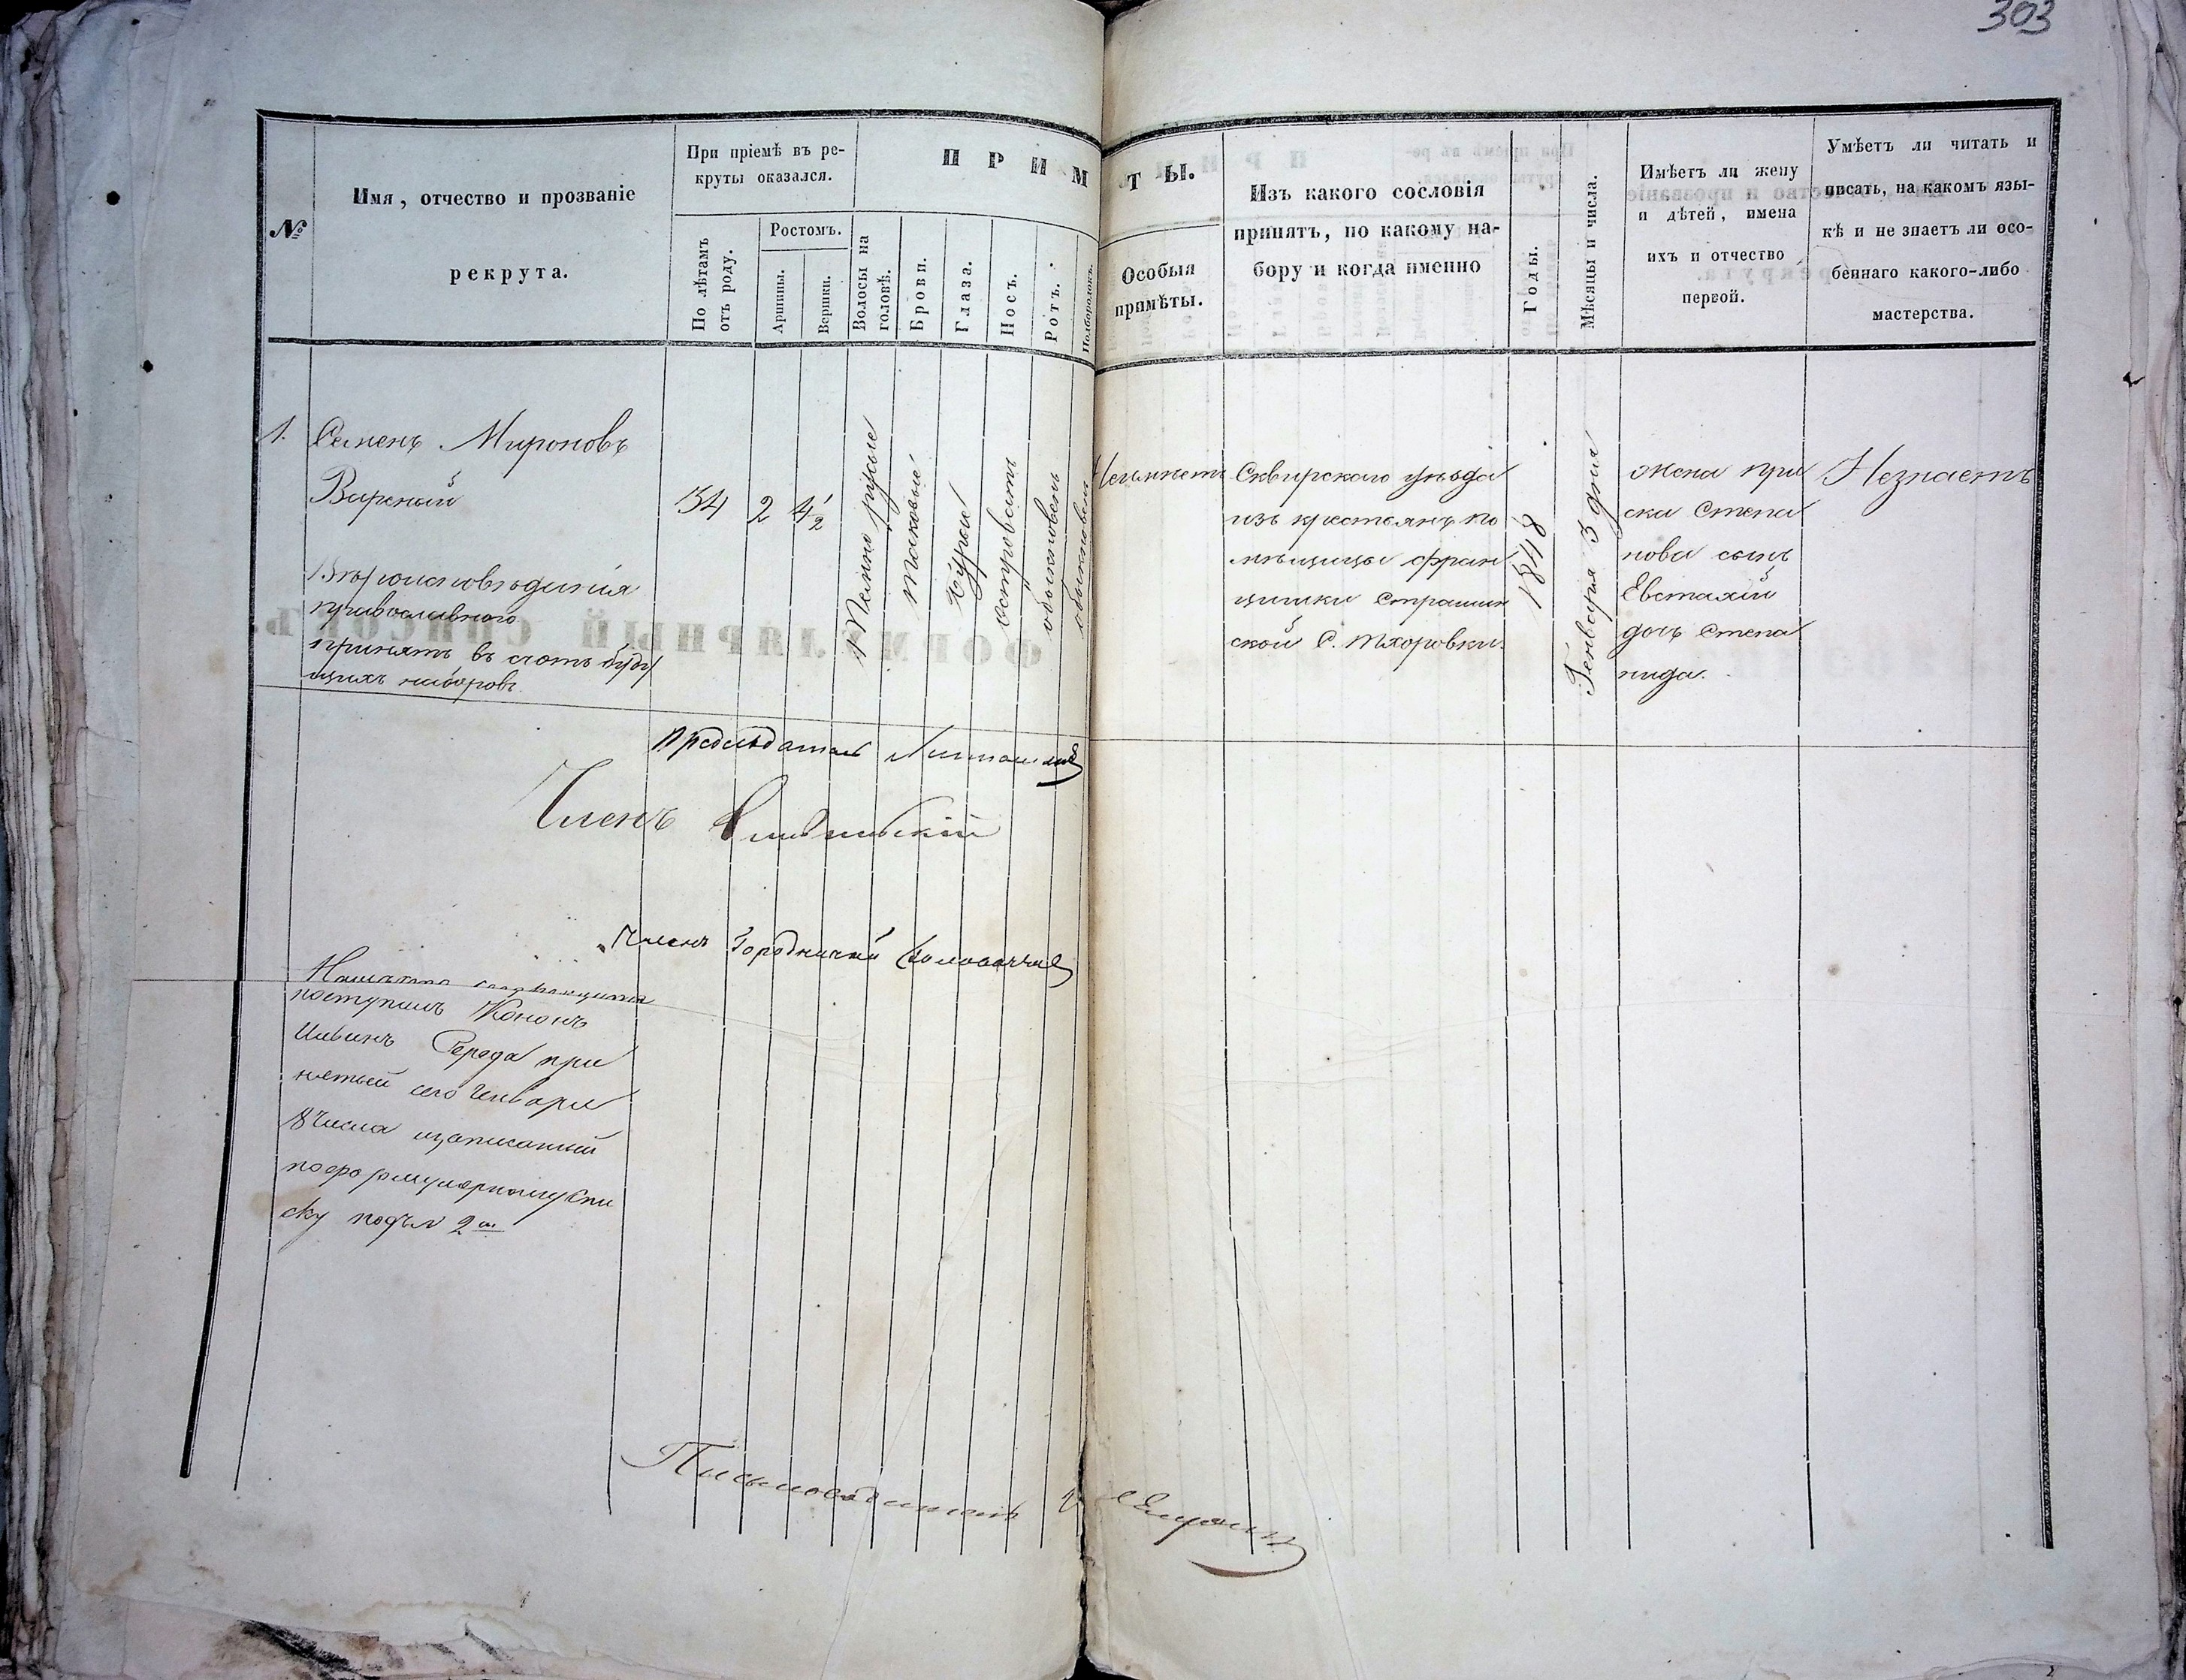 303
№
Имя, отчество и прозваніе
рекрута.
При пріемѣ въ ре-
круты оказался.
По лѣтамъ
отъ роду.
Ростомъ.
Аршины.
Вершки.
П Р И М
Волосы на
головѣ.
Брови.
Глаза.
Носъ.
Ротъ.
Подбородокъ.
Т Ы.
Особыя
примѣты.
Изъ какого сословія
принятъ, по какому на-
бору и когда именно
Годы.
Мѣсяцы и числа.
Имѣетъ ли жену
и дѣтей, имена
ихъ и отчество
первой.
Умѣетъ ли читать и
писать, на какомъ язы-
кѣ и не знаетъ ли осо-
беннаго какого-либо
мастерства.
1.
Семенъ Мироновъ
Вареный
Вѣроисповѣданія
православного
принятъ въ счотъ буду
щихъ наборовъ
34
2
4 1/2
Темно русые
таковые
бурые
островатъ
обыкновен
обыкновен
Неимѣетъ
Сквирскаго уѣзда
изъ крестьянъ по
мѣщицы фран
цишки Страшин
ской С. Тхоровки.
1848
Генваря 3 дня
жена при
ска Степа
нова сынъ
Евстахій
дочь Степа
нида.
Незнаетъ
Предсѣдатель
Членъ
Членъ Городничий
поступилъ Кононъ
Ивинъ Середа при
нятый сего Генваря
числа изаписанный
поформулярномуспи
ску подъ N 2мъ
Письмоводитель
ФОРМУЛЯРНЫЙ СПИСОКЪ.